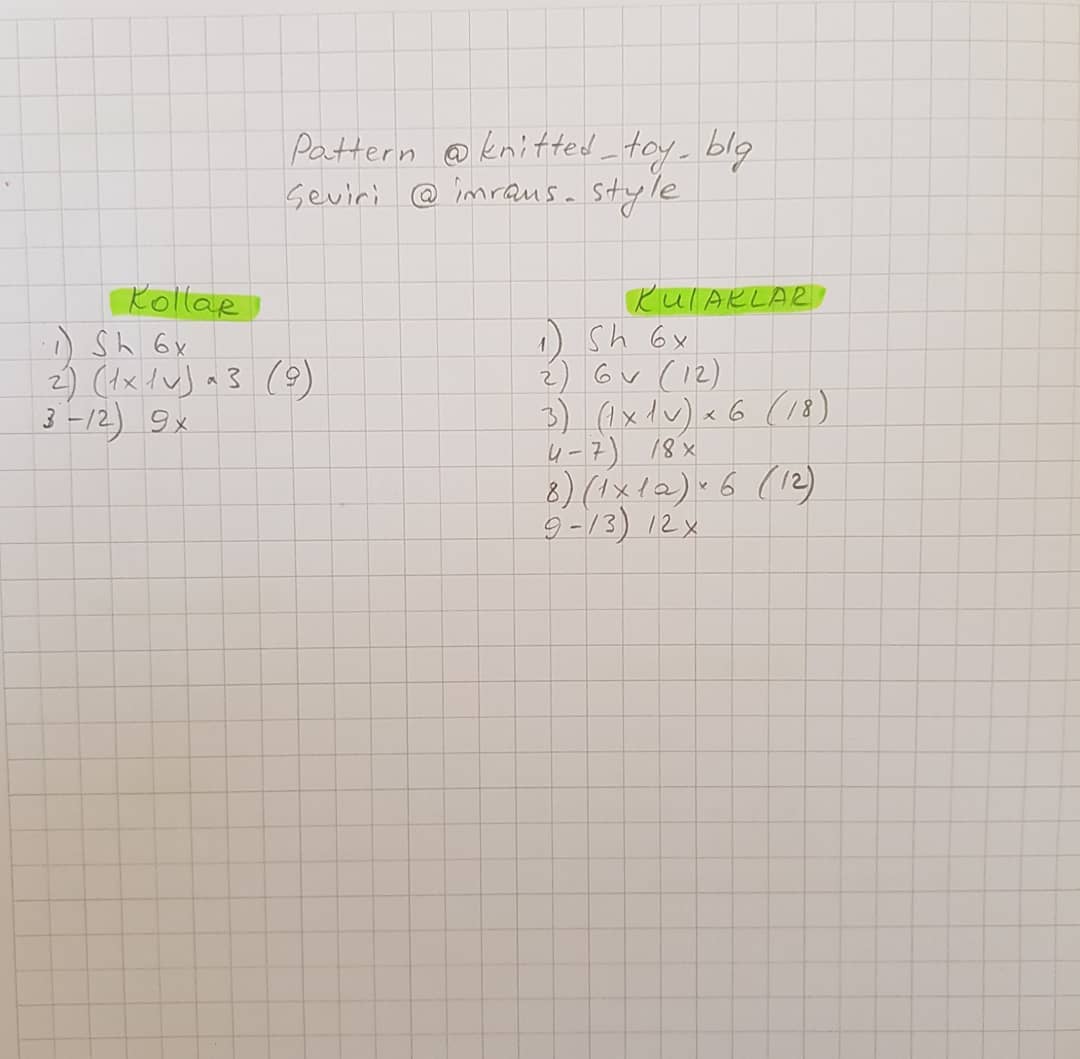 Pattern @knitted_toy_blg
Çeviri @imrans_style
Kollar
1) Sh 6x
2) (1x1v)*3 (9)
3-12) 9x
KULAKLAR
1) Sh 6x
2) 6v (12)
3) (1x1v)*6 (18)
4-7) 18x
8) (1x1a)*6 (12)
9-13) 12x